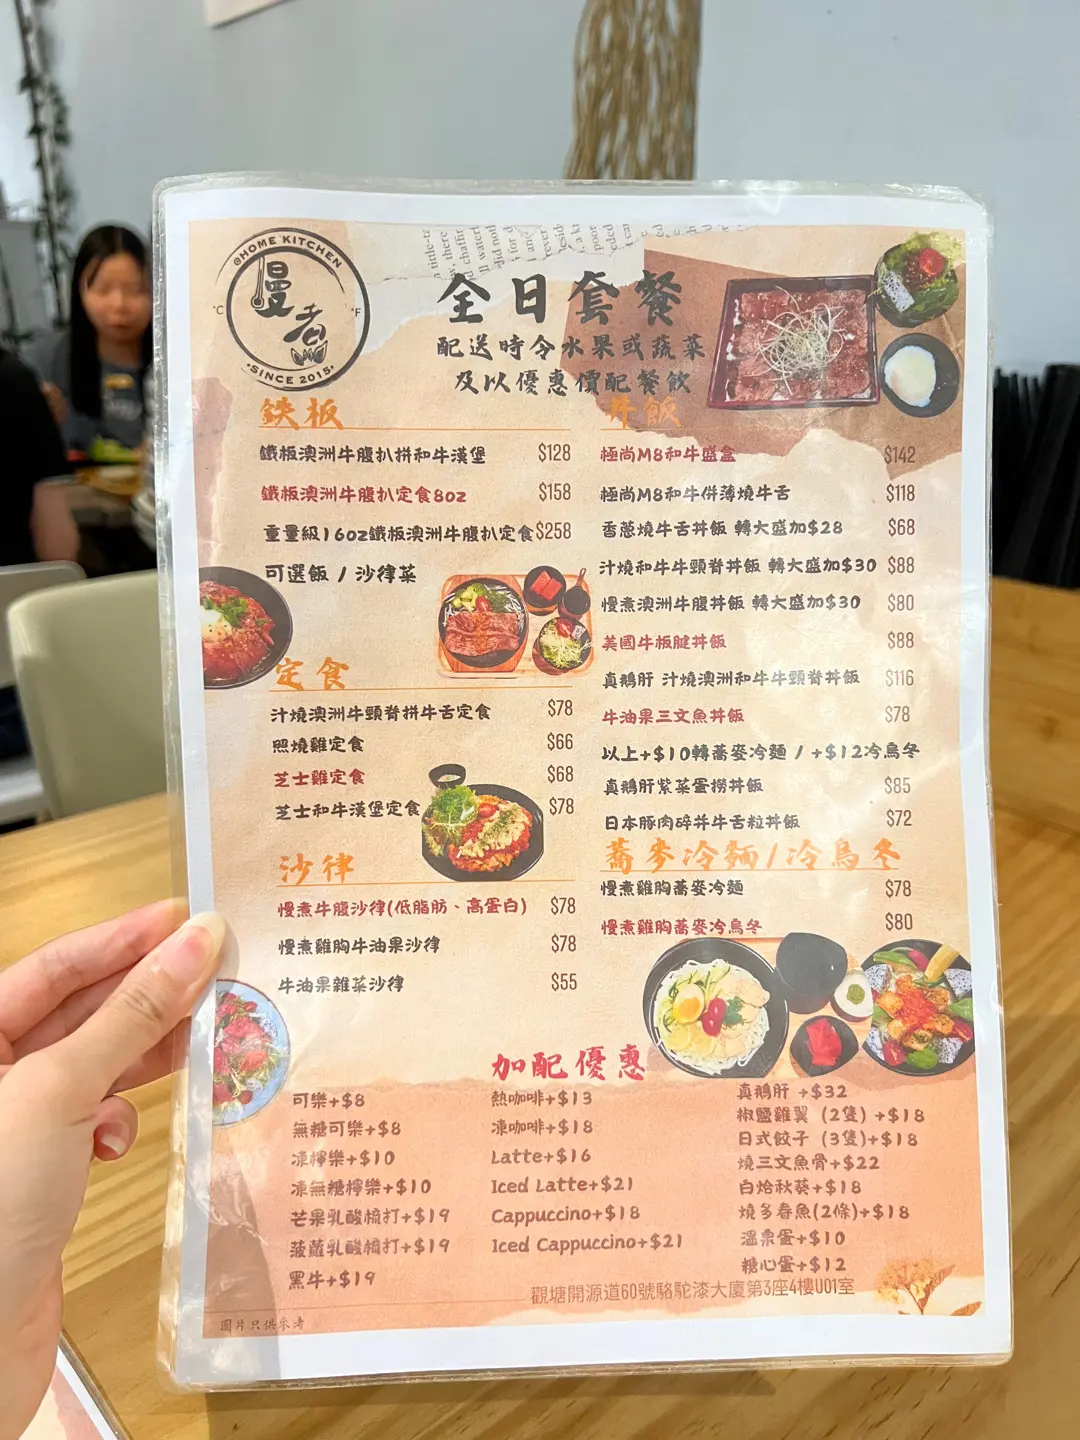 @HOME KITCHEN
慢煮
°C °F
·SINCE 2015·
全日套餐
配送時令水果或蔬菜
及以優惠價配餐飲
鉄板
鐵板澳洲牛腹扒拼和牛漢堡 $128
鐵板澳洲牛腹扒定食8oz $158
重量級16oz鐵板澳洲牛腹扒定食$258
可選飯 / 沙律菜
定食
汁燒澳洲牛頸脊拼牛舌定食 $78
照燒雞定食 $66
芝士雞定食 $68
芝士和牛漢堡定食 $78
沙律
慢煮牛腹沙律(低脂肪、高蛋白) $78
慢煮雞胸牛油果沙律 $78
牛油果雜菜沙律 $55
丼飯
極尚M8和牛盛盒 $142
極尚M8和牛併薄燒牛舌 $118
香蔥燒牛舌丼飯 轉大盛加$28 $68
汁燒和牛牛頸脊丼飯 轉大盛加$30 $88
慢煮澳洲牛腹丼飯 轉大盛加$30 $80
美國牛板腱丼飯 $88
真鵝肝 汁燒澳洲和牛牛頸脊丼飯 $116
牛油果三文魚丼飯 $78
以上+$10轉蕎麥冷麵 / +$12冷烏冬
真鵝肝紫菜蛋撈丼飯 $85
日本豚肉碎丼牛舌粒丼飯 $72
蕎麥冷麵/冷烏冬
慢煮雞胸蕎麥冷麵 $78
慢煮雞胸蕎麥冷烏冬 $80
加配優惠
可樂+$8
無糖可樂+$8
凍檸樂+$10
凍無糖檸樂+$10
芒果乳酸梳打+$19
菠蘿乳酸梳打+$19
黑牛+$19
熱咖啡+$13
凍咖啡+$18
Latte+$16
Iced Latte+$21
Cappuccino+$18
Iced Cappuccino+$21
真鵝肝 +$32
椒鹽雞翼 (2隻) +$18
日式餃子 (3隻)+$18
燒三文魚骨+$22
白烚秋葵+$18
燒多春魚(2條)+$18
溫泉蛋+$10
糖心蛋+$12
觀塘開源道60號駱駝漆大廈第3座4樓U01室
圖片只供參考